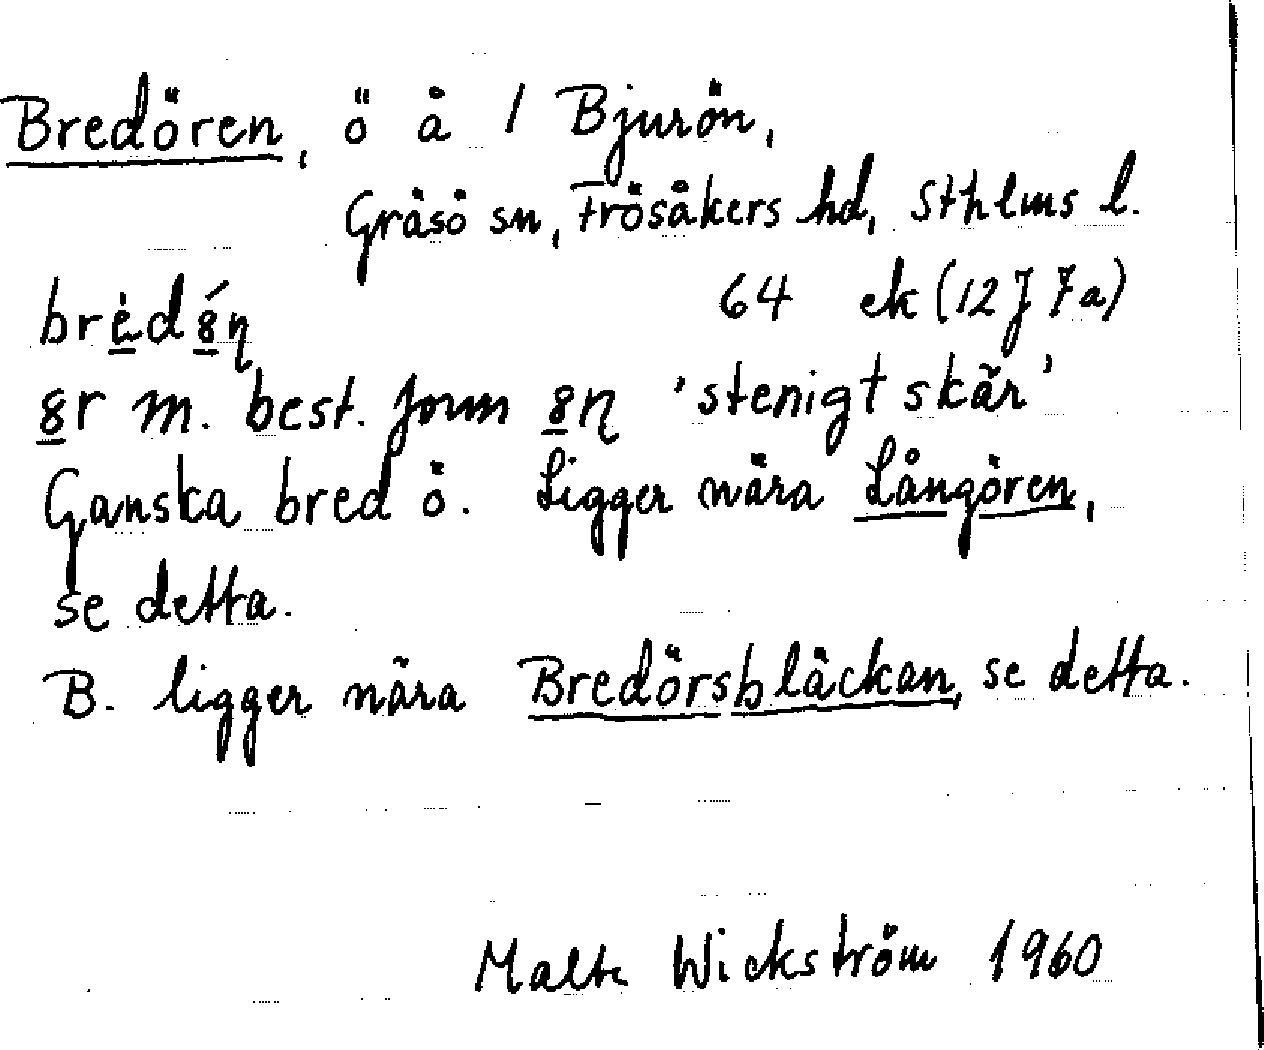 Bredören, ö å 1 Bjurön,
Gräsö sn, Frösåkers hd, Sthlms l.
brèdǿn 64 ek (12J 7a)
8r m. best. form 8n 'stenigt skär'
Ganska bred ö. Ligger nära Långören,
se detta.
B. ligger nära Bredörsbläckan, se detta.
Malte Wickström 1960